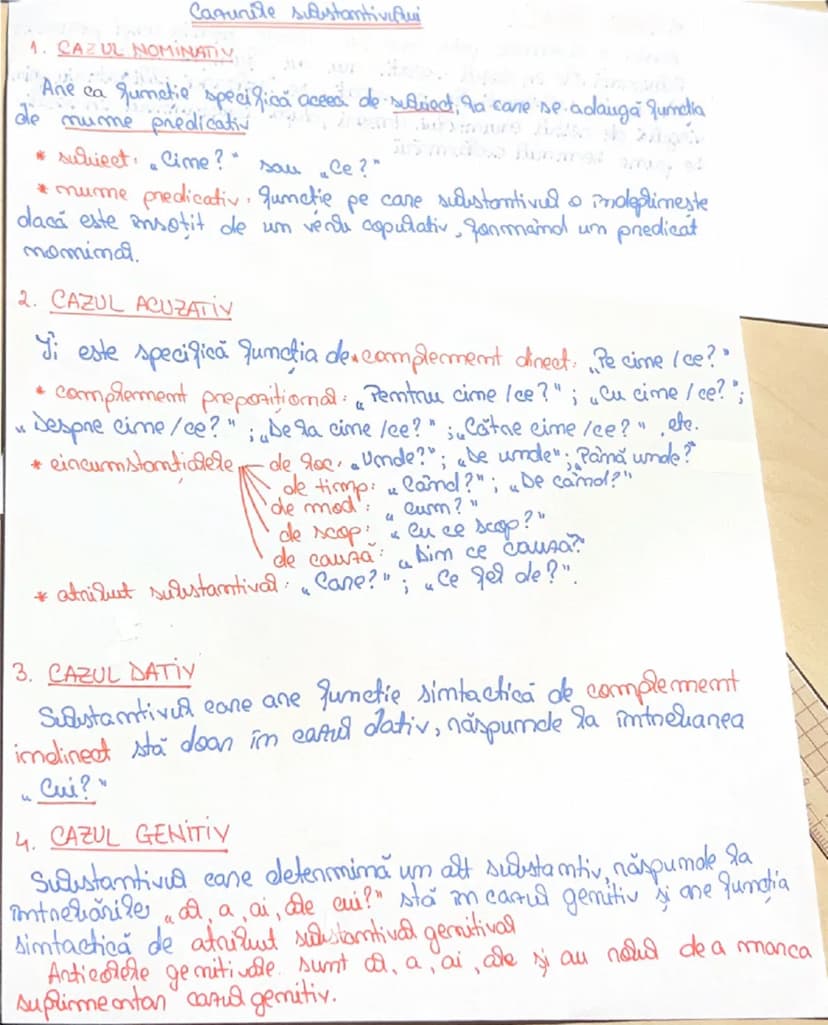 Cazurile substantivului
1. CAZUL NOMINATIV
Are ca funcție specifică aceea de subiect, la care se adaugă funcția
de nume predicativ
* subiect: „Cine?" sau „Ce?"
* nume predicativ: funcție pe care substantivul o îndeplinește
dacă este însoțit de un verb copulativ, formând un predicat
nominal.
2. CAZUL ACUZATIV
Îi este specifică funcția de * complement direct: „Pe cine / ce?"
* complement prepozițional: „Pentru cine / ce?"; „Cu cine / ce?";
„Despre cine / ce?"; „De la cine / ce?"; „Către cine / ce?", etc.
* circumstanțialele de loc: „Unde?"; „De unde"; Până unde?
de timp: „Când?"; „De când?"
de mod: „cum?"
de scop: „cu ce scop?"
de cauză: „din ce cauză?"
* atribut substantival: „Care?"; „Ce fel de?".
3. CAZUL DATIV
Substantivul care are funcție simtactică de complement
indirect stă doar în cazul dativ, răspunde la întrebarea
„Cui?"
4. CAZUL GENITIV
Substantivul care determină un alt substantiv, răspunde la
întrebările „al, a, ai, ale cui?" stă în cazul genitiv și are funcția
simtactică de atribut substantival genitival
Articolele genitivale sunt al, a, ai, ale și au rolul de a marca
suplimentar cazul genitiv.